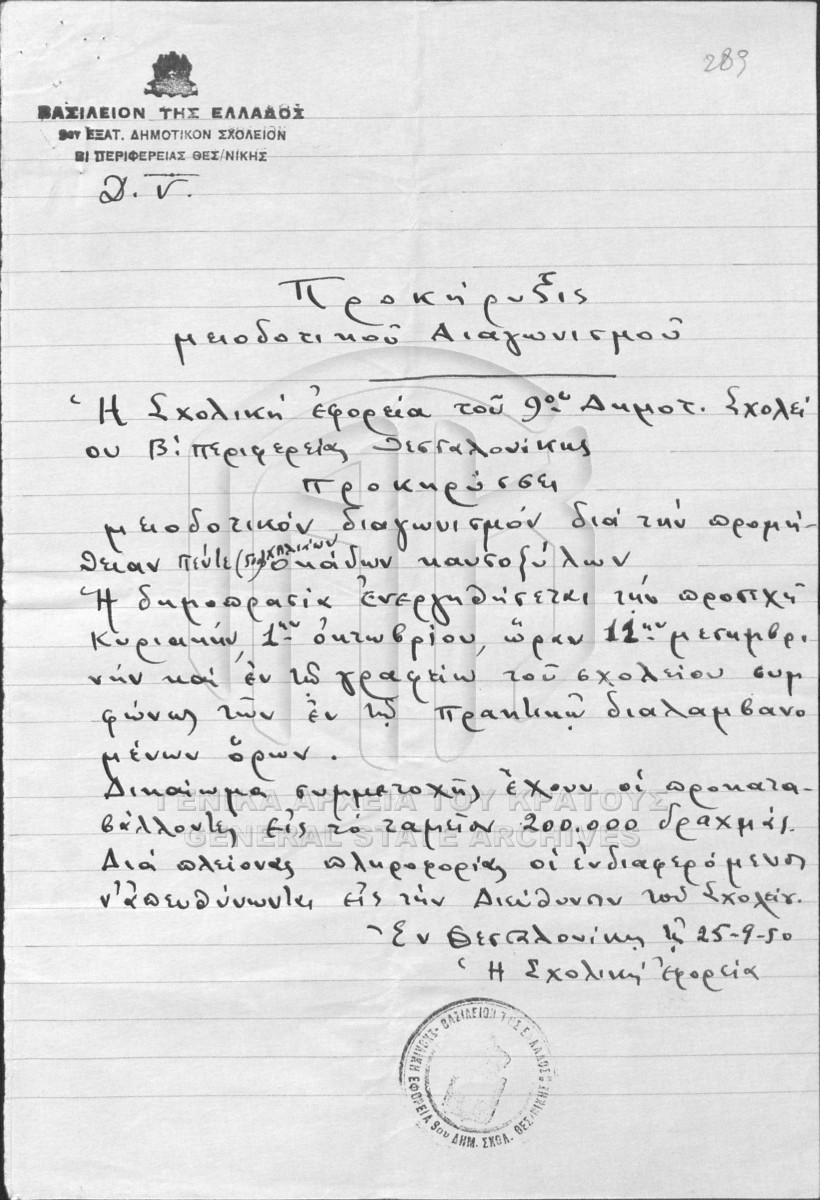 289
ΒΑΣΙΛΕΙΟΝ ΤΗΣ ΕΛΛΑΔΟΣ
9ον ΕΞΑΤ. ΔΗΜΟΤΙΚΟΝ ΣΧΟΛΕΙΟΝ
Β! ΠΕΡΙΦΕΡΕΙΑΣ ΘΕΣ/ΝΙΚΗΣ
Προκήρυξις
μειοδοτικοῦ Διαγωνισμοῦ
Ἡ Σχολική ἐφορεία τοῦ 9ου Δημοτ. Σχολεί
ου Β! περιφερείας Θεσσαλονίκης
Προκηρύσσει
μειοδοτικόν διαγωνισμόν διά τήν προμή
θειαν πέντε χιλιάδων ὀκάδων καυσοξύλων
Ἡ δημοπρασία ἐνεργηθήσεται τήν προσεχῆ
Κυριακήν, 1ην ὀκτωβρίου, ὥραν 11ην μεσημβρι
νήν καί ἐν τῷ γραφείῳ τοῦ σχολείου συμ
φώνως τῶν ἐν τῷ πρακτικῷ διαλαμβανο
μένων ὅρων.
Δικαίωμα συμμετοχῆς ἔχουν οἱ προκατα-
βάλλοντες εἰς τό ταμεῖον 200.000 δραχμάς.
Διά πλείονας πληροφορίας οἱ ἐνδιαφερόμενοι
ν' ἀπευθύνωνται εἰς τήν Διεύθυνσιν τοῦ Σχολείου.
Ἐν Θεσσαλονίκῃ τῇ 25-9-50
Ἡ Σχολική Ἐφορεία
ΓΕΝΙΚΑ ΑΡΧΕΙΑ ΤΟΥ ΚΡΑΤΟΥΣ
GENERAL STATE ARCHIVES
ΒΑΣΙΛΕΙΟΝ ΤΗΣ ΕΛΛΑΔΟΣ
ΣΧΟΛΙΚΗ ΕΦΟΡΕΙΑ 9ου ΔΗΜ. ΣΧΟΛ. ΘΕΣ/ΝΙΚΗΣ